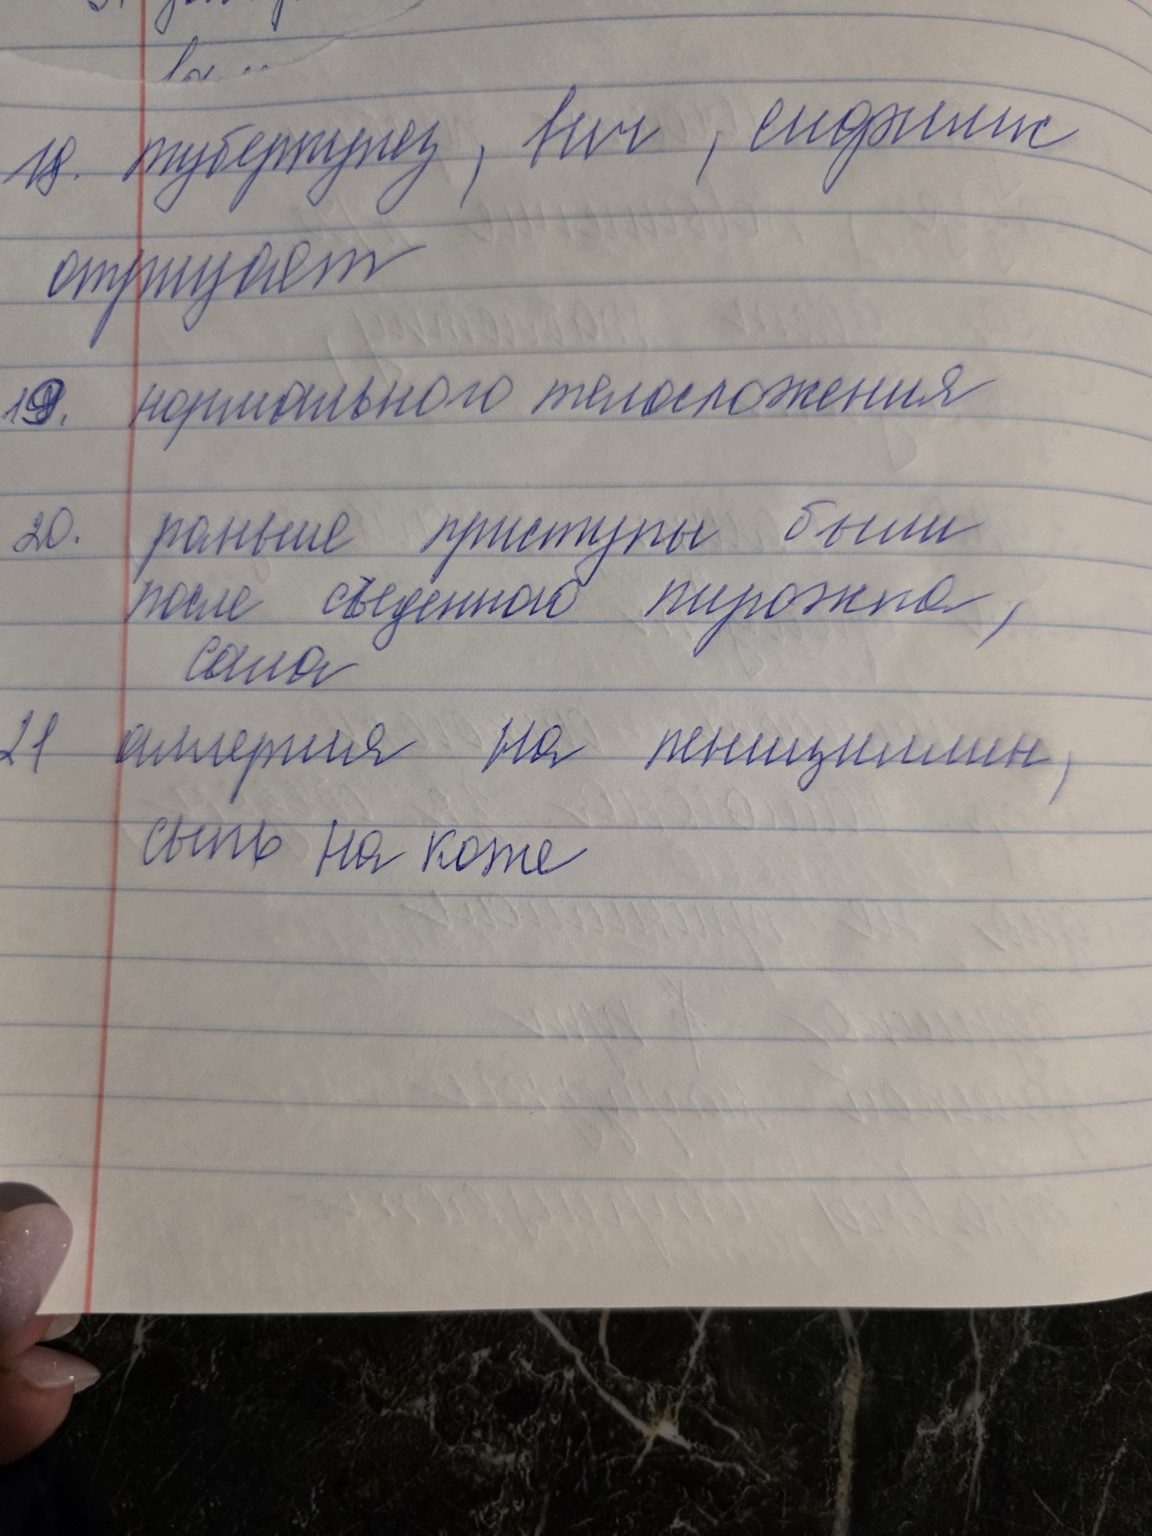 18. туберкулез, вич, сифилис
отрицает
19. нормального телосложения
20. раньше приступы были
после съеденного пирожка,
сала
21 аллергия на пенициллин,
сыпь на коже